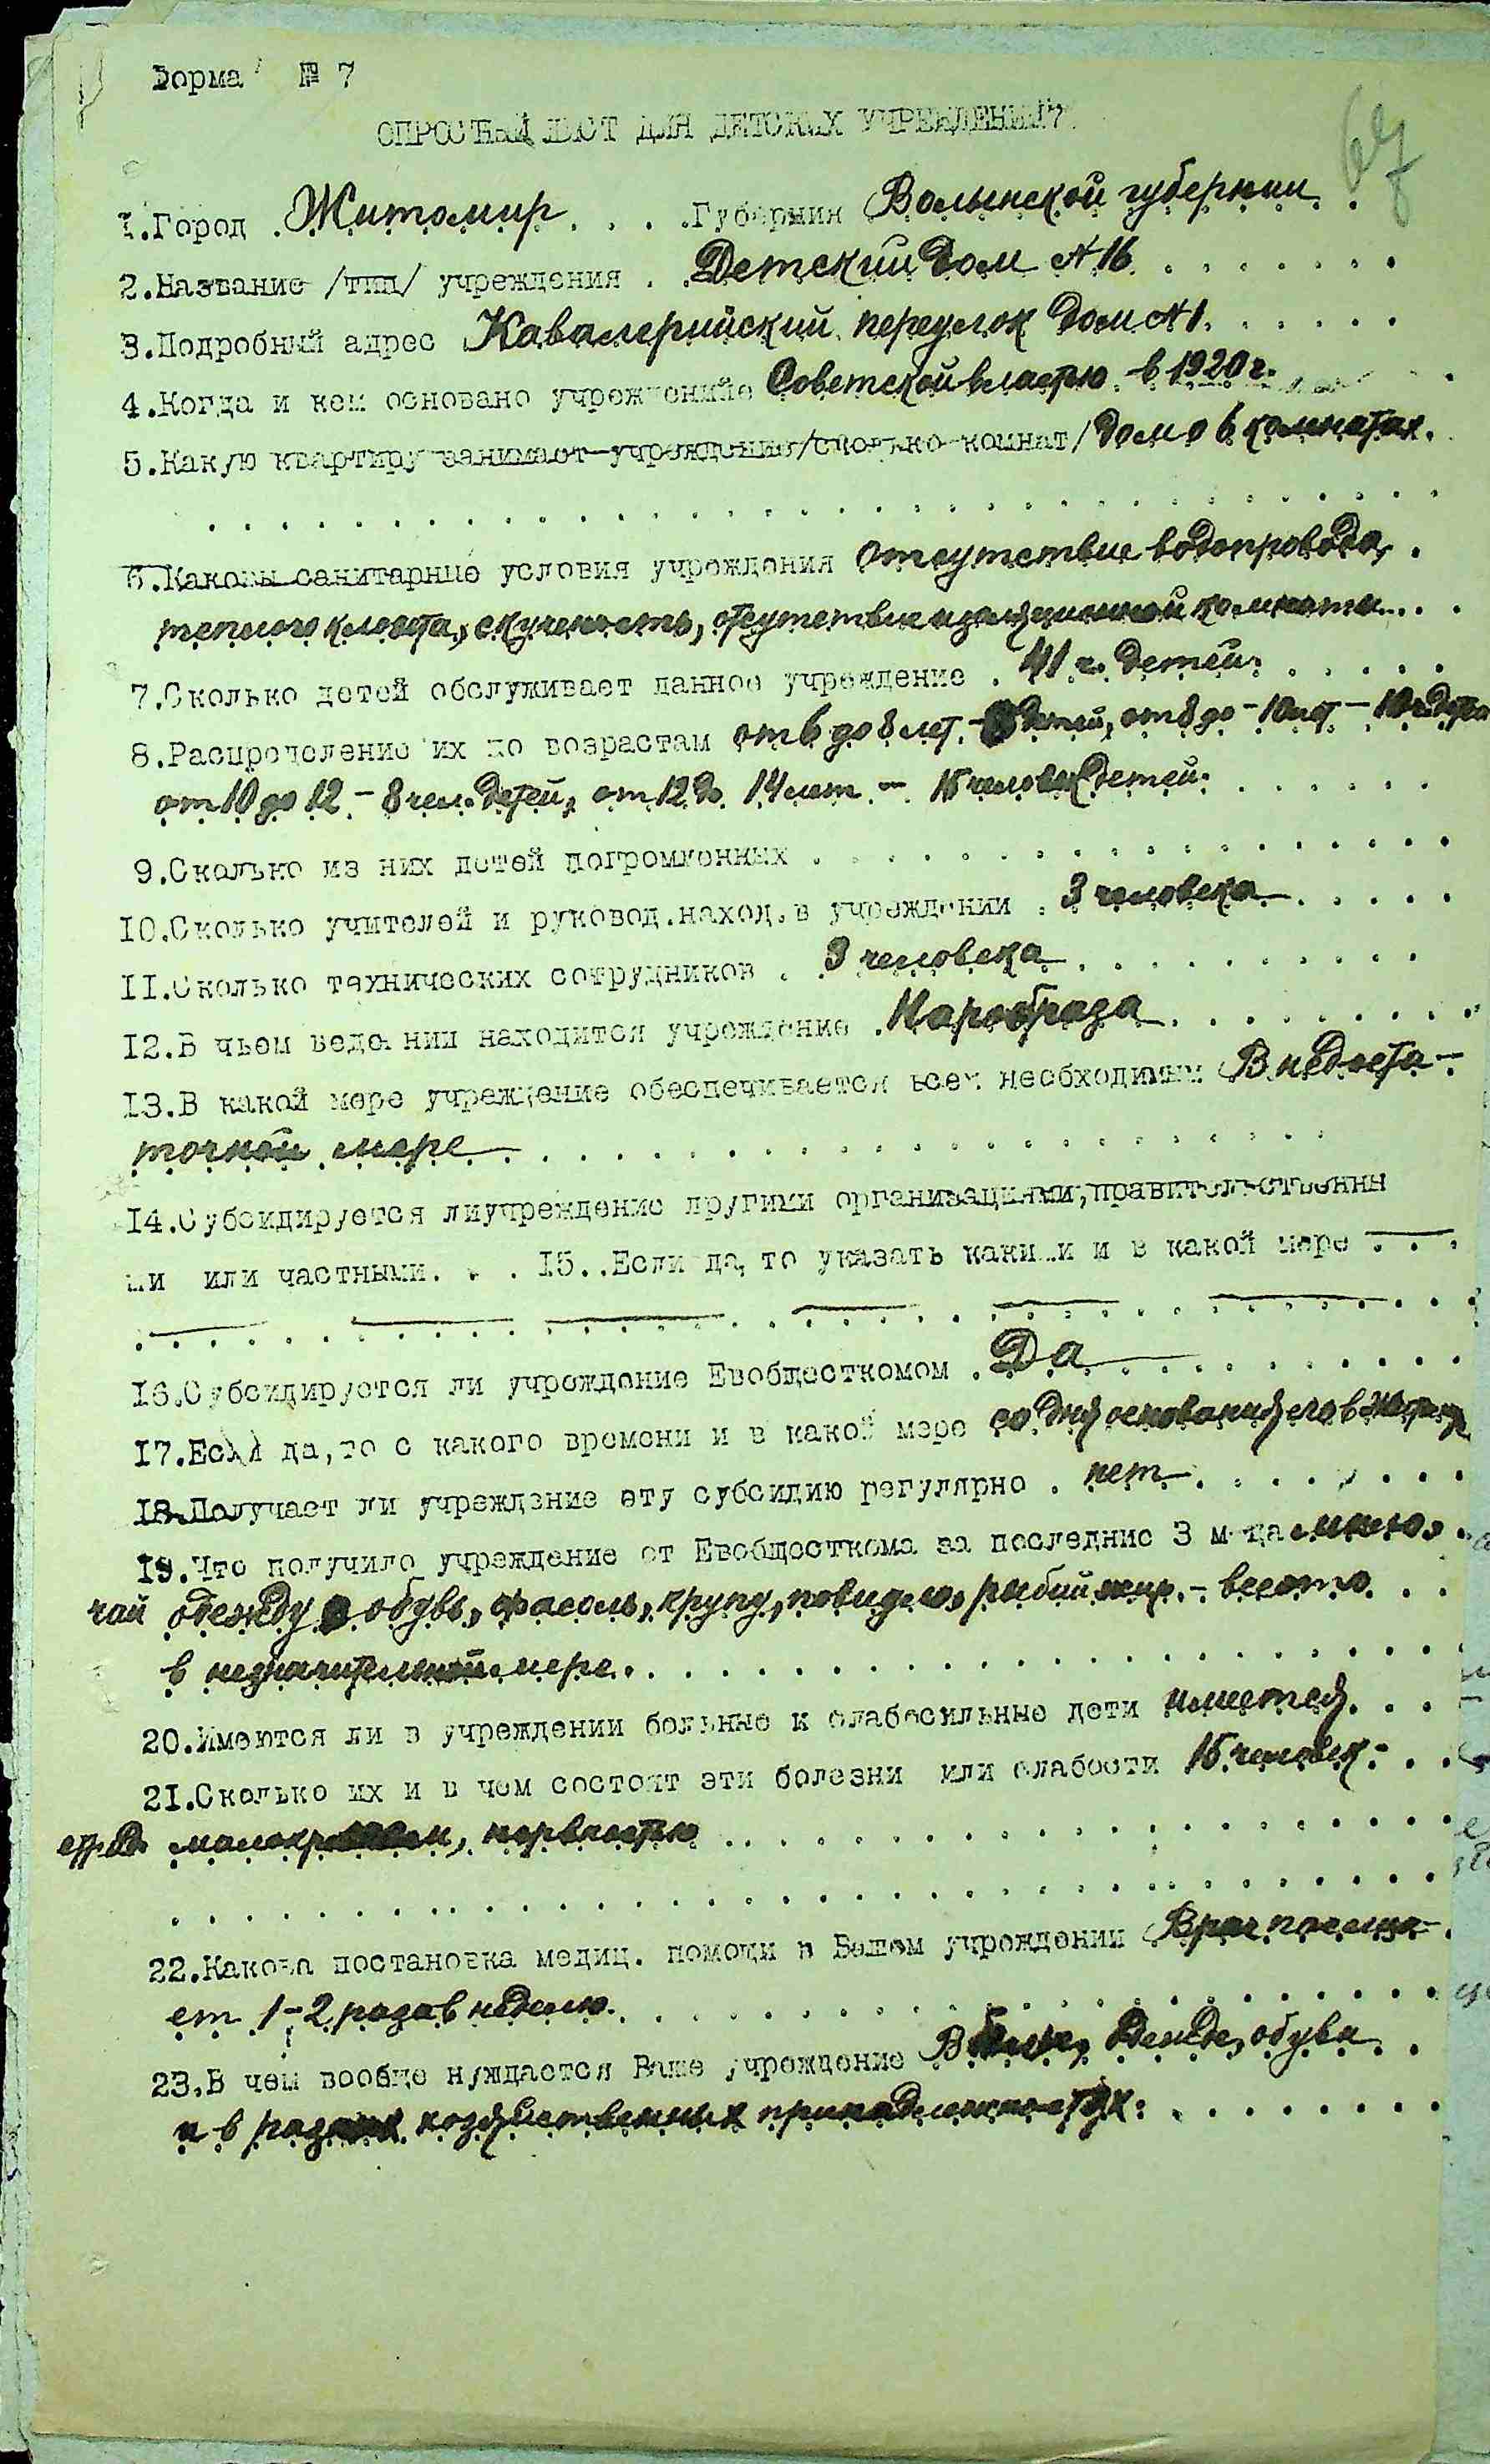 Форма № 7
67
ОПРОСНЫЙ ЛИСТ ДЛЯ ДЕТСКИХ УЧРЕЖДЕНИЙ
1.Город . Житомир . . . .Губерния Волынской губернии . .
2.Название /тип/ учреждения . . Детский дом № 16 . . . . . . . .
3.Подробный адрес Кавалерийский переулок дом № 1. . . . . .
4.Когда и кем основано учреждений Советской властью в 1920 г.
5.Какую квартиру занимает учреждение/сколько комнат/ дом о 6 комнатах.
6.Каковы санитарные условия учреждения Отсутствие водопровода, .
теплого клозета, скученость, отсутствие изоляционной комнаты. . . .
7.Сколько детей обслуживает данное учреждение . 41 ч. детей. . . . . .
8.Распределение их по возрастам от 6 до 8 лет - 8 детей, от 8 до - 10 лет - 10 ч. дете
от 10 до 12 - 8 чел. детей, от 12 до 14 лет - 15 человек детей. . . . . . .
9.Сколько из них детей погромленных . . . . . . . . . . . . . . . .
10.Сколько учителей и руковод.наход.в учреждении . 3 человека . . . . .
11.Сколько технических сотрудников . 3 человека . . . . . . . . . .
12.В чьем ведении находится учреждение . Наробраза . . . . . . . . .
13.В какой мере учреждение обеспечивается всем необходимым В недоста-
точной мере . . . . . . . . . . . . . . . . . .
14.Субсидируется лиучреждение другими организациями,правительственны
ми или частными. . . 15..Если да, то указать какими и в какой мере . . .
16.Субсидируется ли учреждение Евобщесткомом . Да . . . . . . . . . .
17.Если да,то с какого времени и в какой мере со дня основания его в
18.Получает ли учреждение эту субсидию регулярно . нет . . . . . . . .
19.Что получило учреждение от Евобщесткома за последние 3 м-ца мыло, .
чай одежду обувь, фасоль, крупу, повидло, рыбий жир. - все это . . .
в незначительной мере. . . . . . . . . . . . . . . . . . .
20.Имеются ли в учреждении больные и слабосильные дети имеется. . . .
21.Сколько их и в чем состоят эти болезни или слабости 15 человек - . .
страд. малокровием, нервностью . . . . . . . . . . . . . . . . .
22.Какова постановка медиц. помощи в Вашем учреждении Врач посеща-
ет 1-2 раза в неделю. . . . . . . . . . . . . . . . . .
23.В чем вообще нуждается Ваше учреждение В белье, одежде, обуви . .
и в разных хозяйственных принадлежностях. . . . . . . . . .